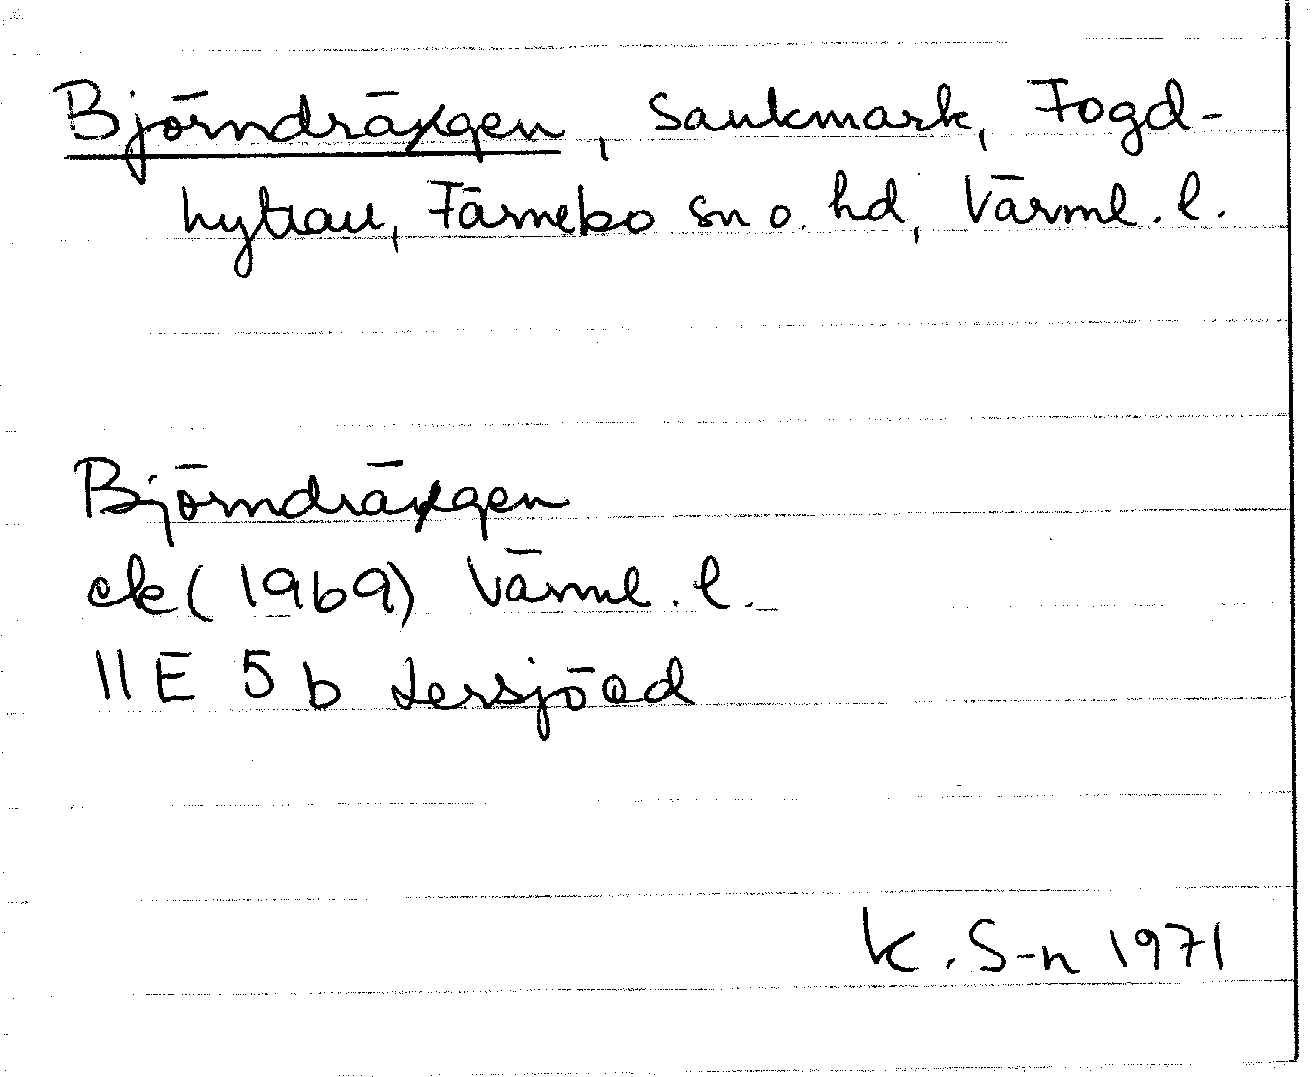 Björndräxgen, Sankmark, Fogd-
hyttan, Färnebo sn o. hd, Värml. l.
Björndräxgen
ek (1969) Värml. l.
11 E 5 b Lersjöed
K. S-n 1971